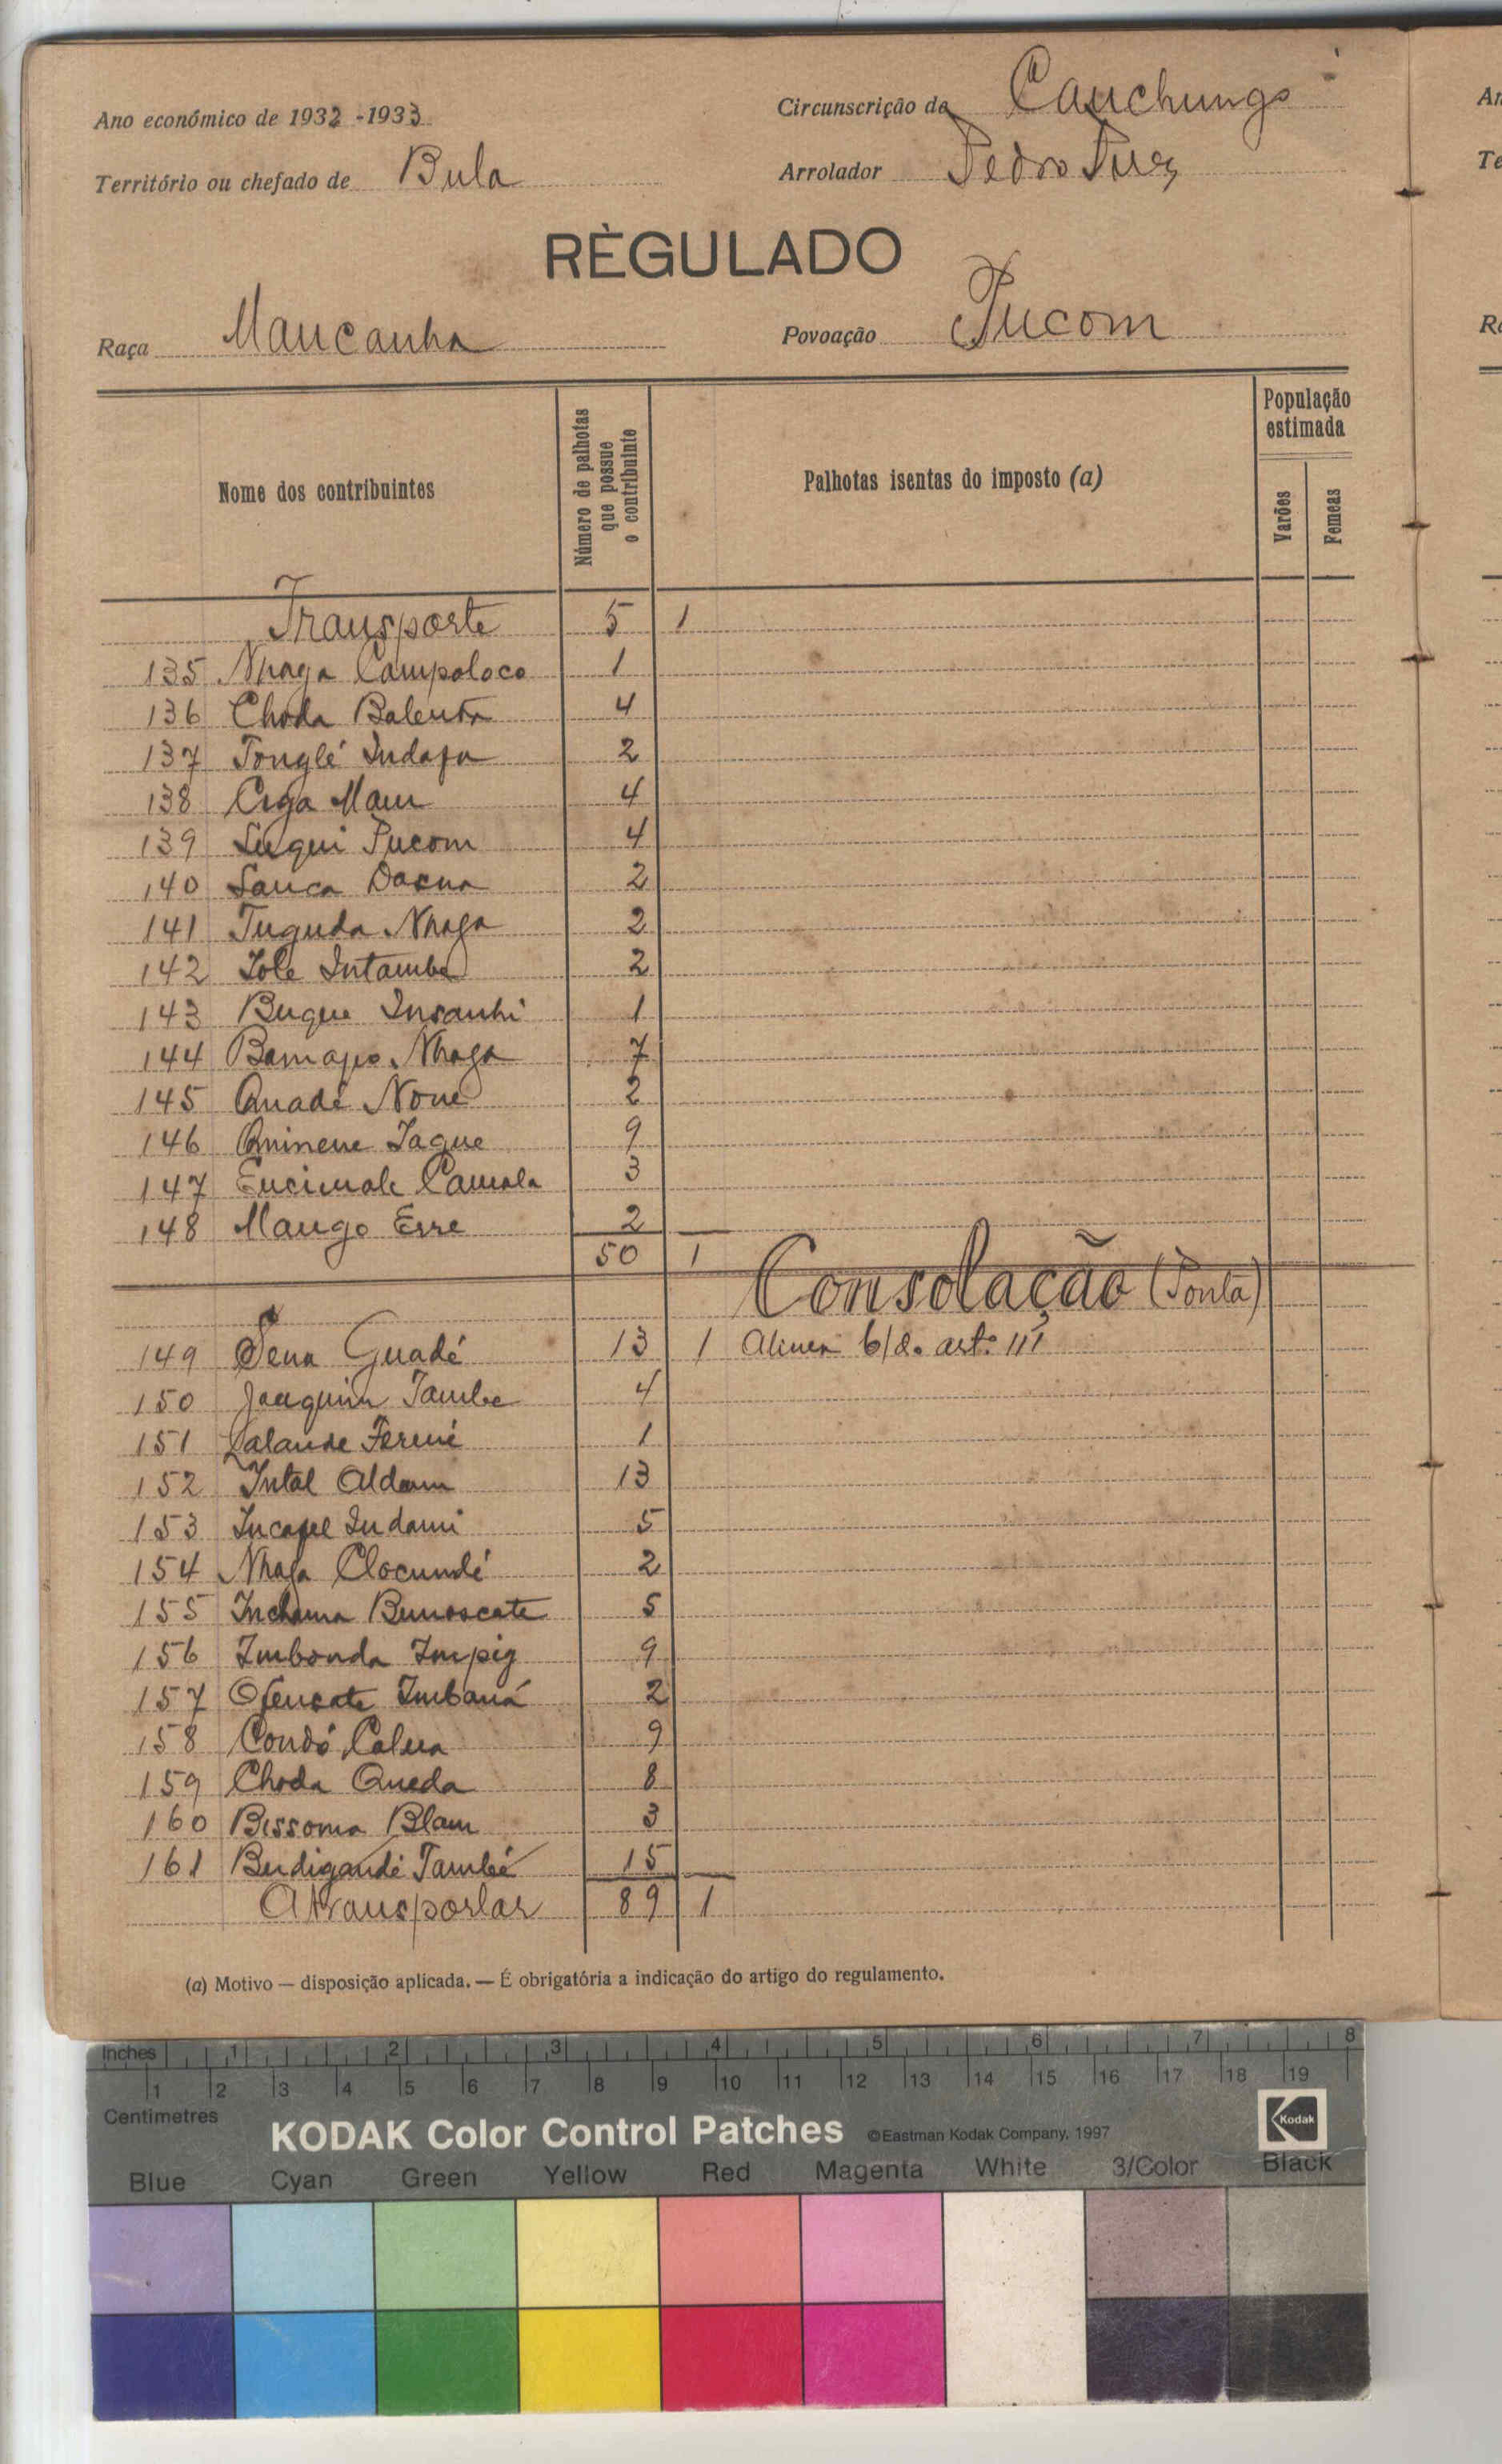 Ano económico de 1932-1933
Circunscrição de Cauchungo
Território ou chefado de Bula
Arrolador Pedro Pires
RÈGULADO
Raça Mancanha
Povoação Pucom
Nome dos contribuintes
Número de palhotas que possue o contribuinte
Palhotas isentas do imposto (a)
População estimada
Varões
Femeas
Transporte 5 1
135 Nhaga Campoloco 1
136 Choda Balenta 4
137 Tonglé Indafa 2
138 Cuga Mau 4
139 Luqui Pucom 4
140 Sanca Dacna 2
141 Tuguda Nhaga 2
142 Iole Intambe 2
143 Buque Insanhi 1
144 Bamapo Nhaga 7
145 Quadé None 2
146 Quinene Iaque 9
147 Encimale Camala 3
148 Mango Erre 2
50 1
Consolação (Ponta)
149 Sena Guadé 13 1 Alinea b/d. art.º 111
150 Joaquim Tambe 4
151 Lalande Ferené 1
152 Intal Aldam 13
153 Incapel Indami 5
154 Nhaga Clocundé 2
155 Inchama Bunoscate 5
156 Imbonda Impig 9
157 Ofencate Imbaná 2
158 Condó Calua 9
159 Choda Queda 8
160 Bissoma Blam 3
161 Budigandé També 15
A transportar 89 1
(a) Motivo — disposição aplicada. — É obrigatória a indicação do artigo do regulamento.
Inches 1 2 3 4 5 6 7 8
1 2 3 4 5 6 7 8 9 10 11 12 13 14 15 16 17 18 19
Centimetres
KODAK Color Control Patches ©Eastman Kodak Company, 1997 Kodak
Blue Cyan Green Yellow Red Magenta White 3/Color Black